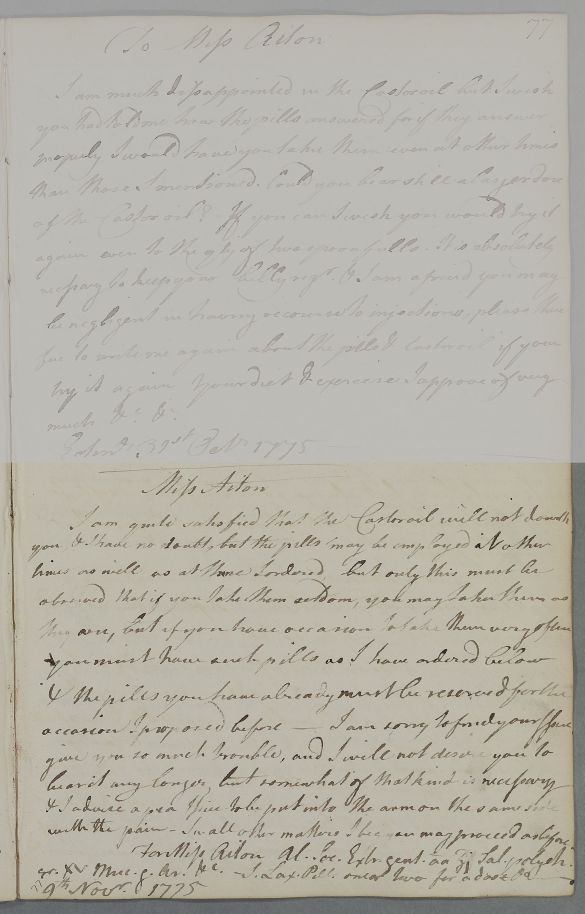 77
To Miss Aiton
I am much dissappointed in the Castor oil but I wish
you had told me how the pills answered for if they answer
properly I would have you take them even at other times
than those I mentioned. Could you bear still a larger dose
of the Castor oil? If you can I wish you would try it
again even to the qty of two spoonfulls. It is absolutely
necessary to keep your belly regr. & I am afraid you may
be negligent in having recourse to injections, please there
fore to write me again about the pills & Castor oil if you
try it again Your diet & exercise I approve of very
much &c. &c.
31st Octr. 1775
Miss Aiton
I am quite satisfied that the Castor oil will not do with
you & I have no doubt, but the pills may be employed at other
times as well as at those I ordered, but only this must be
observed that if you take them seldom, you may take them as
they are, but if you have occasion to take them very often
you must have such pills as I have ordered below
& the pills you have already must be reserved for the
occasion I proposed before — I am sorry to find your Issue
give you so much trouble, and I will not desire you to
bear it any longer, but somewhat of that kind is necessary
& I advise a pea Issue to be put into the arm on the same side
with the pain – In all other matters I see you may proceed as before
For Miss Aiton Al. Soc. Extr. gent. aa ʒj Sal. polych.
gr. XV Muc. g. Ar. &c. – f. Lax. Pill. one or two for a dose
9th Novr. 1775